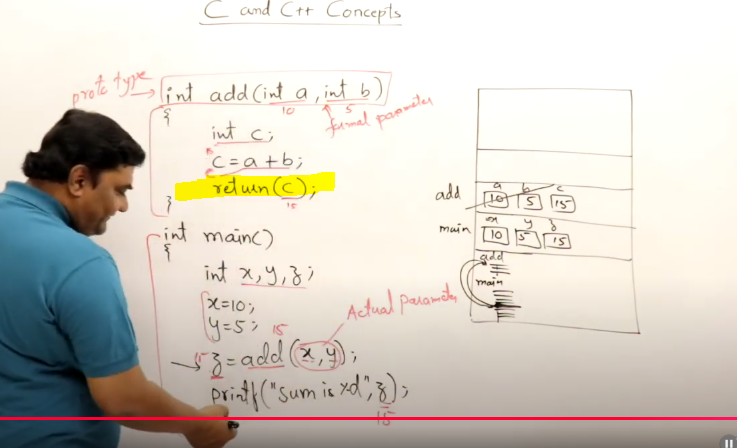 C and C++ Concepts
proto type
int add(int a, int b)
10 5
formal parameter
{
int c;
c=a+b;
return(c);
15
}
int main()
{
int x,y,z;
x=10;
y=5;
Actual Parameter
15
15 z=add(x,y);
printf("sum is %d",z);
15
a b c
add 10 5 15
x y z
main 10 5 15
add
main